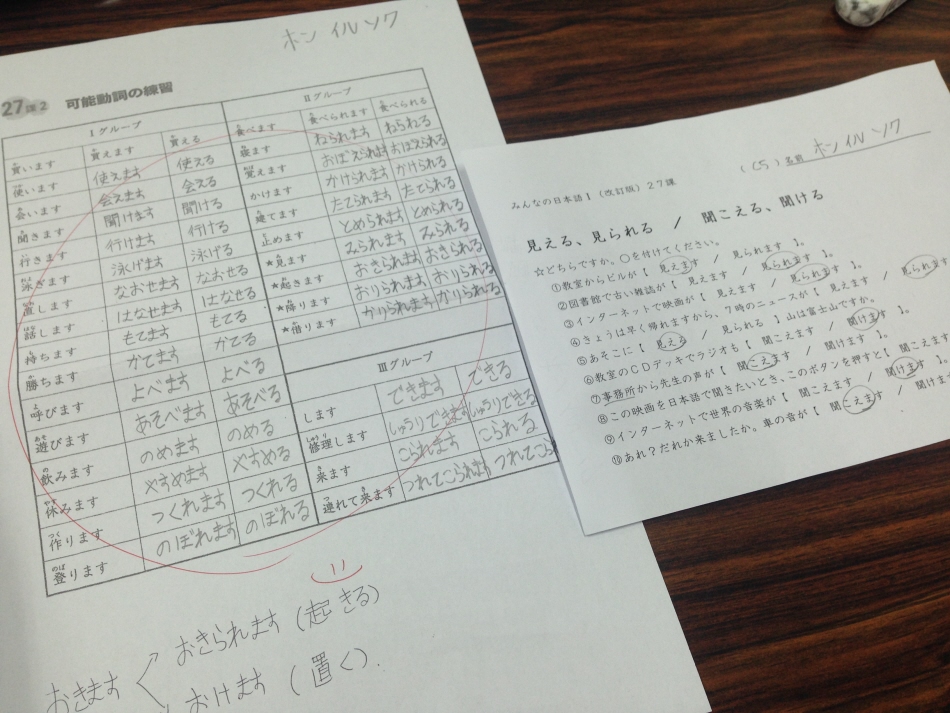 ホン イルソク
27課2 可能動詞の練習
Ⅰグループ
買います 買えます 買える
使います 使えます 使える
会います 会えます 会える
聞きます 聞けます 聞ける
行きます 行けます 行ける
泳ぎます 泳げます 泳げる
直します なおせます なおせる
話します はなせます はなせる
持ちます もてます もてる
勝ちます かてます かてる
呼びます よべます よべる
遊びます あそべます あそべる
飲みます のめます のめる
休みます やすめます やすめる
作ります つくれます つくれる
登ります のぼれます のぼれる
Ⅱグループ
食べます 食べられます 食べられる
寝ます ねられます ねられる
覚えます おぼえられます おぼえられる
かけます かけられます かけられる
建てます たてられます たてられる
止めます とめられます とめられる
★見ます みられます みられる
★起きます おきられます おきられる
★降ります おりられます おりられる
★借ります かりられます かりられる
Ⅲグループ
します できます できる
修理します しゅうりできます しゅうりできる
来ます こられます こられる
連れて来ます つれてこられます つれてこら
おきます おきられます (起きる)
おけます (置く).
(5) 名前 ホン イルソク
みんなの日本語Ⅰ(改訂版)27課
見える、見られる / 聞こえる、聞ける
☆どちらですか。○を付けてください。
①教室からビルが【 見えます / 見られます 】。
②図書館で古い雑誌が【 見えます / 見られます 】。
③インターネットで映画が【 見えます / 見られます 】。
④きょうは早く帰れますから、7時のニュースが【 見えます / 見られます
⑤あそこに【 見える / 見られる 】山は富士山ですか。
⑥教室のCDデッキでラジオも【 聞こえます / 聞けます 】。
⑦事務所から先生の声が【 聞こえます / 聞けます 】。
⑧この映画を日本語で聞きたいとき、このボタンを押すと【 聞こえます
⑨インターネットで世界の音楽が【 聞こえます / 聞けます 】。
⑩あれ?だれか来ましたか。車の音が【 聞こえます / 聞けます